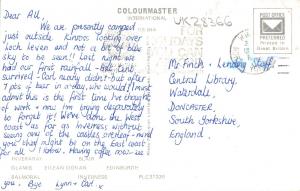 COLOURMASTER
INTERNATIONAL
UK28366
FOR
POST OFFICE
PREFERRED
Dear All,
We are presently camped
just outside Kinross looking over
Loch Leven and not a bit of blue
sky to be seen! Last night we
had our first rainfall - but tent
survived! Carl nearly didn't - but after
7 pts of beer in a day, who would! I must
admit this is the first time I've thought
of work - me I'm enjoying desperately
to forget it! We've done the west
coast as far as Inverness without
seeing one of the castles overleaf - mind
you they might be on the East coast
for all I know! Having coffee now - see
you, Bye Lynn + Carl. x
Mr Finch, - Lending Staff
Central Library,
Waterdale,
DONCASTER,
South Yorkshire,
England.
INVERARAY BLAIR
GLAMIS EILEAN DONAN EDINBURGH
BALMORAL INVERNESS PLC37336